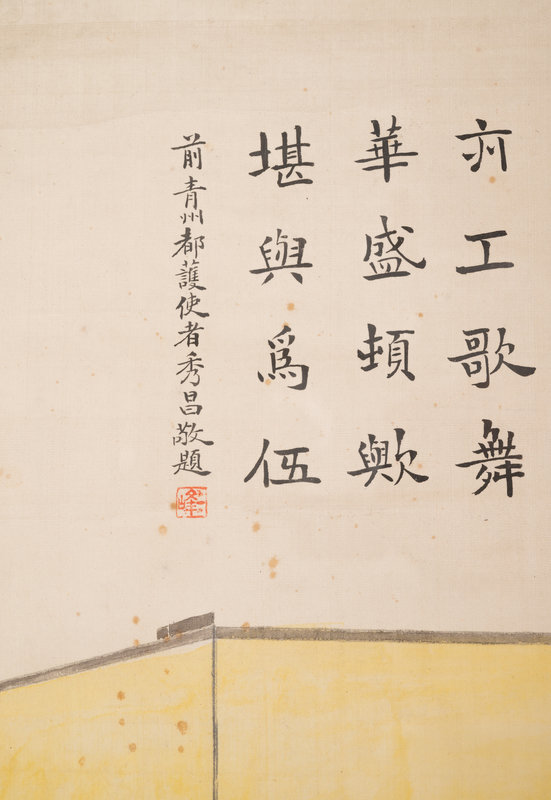 亦工歌舞
華盛頓歟
堪與爲伍
前青州都護使者秀昌敬題